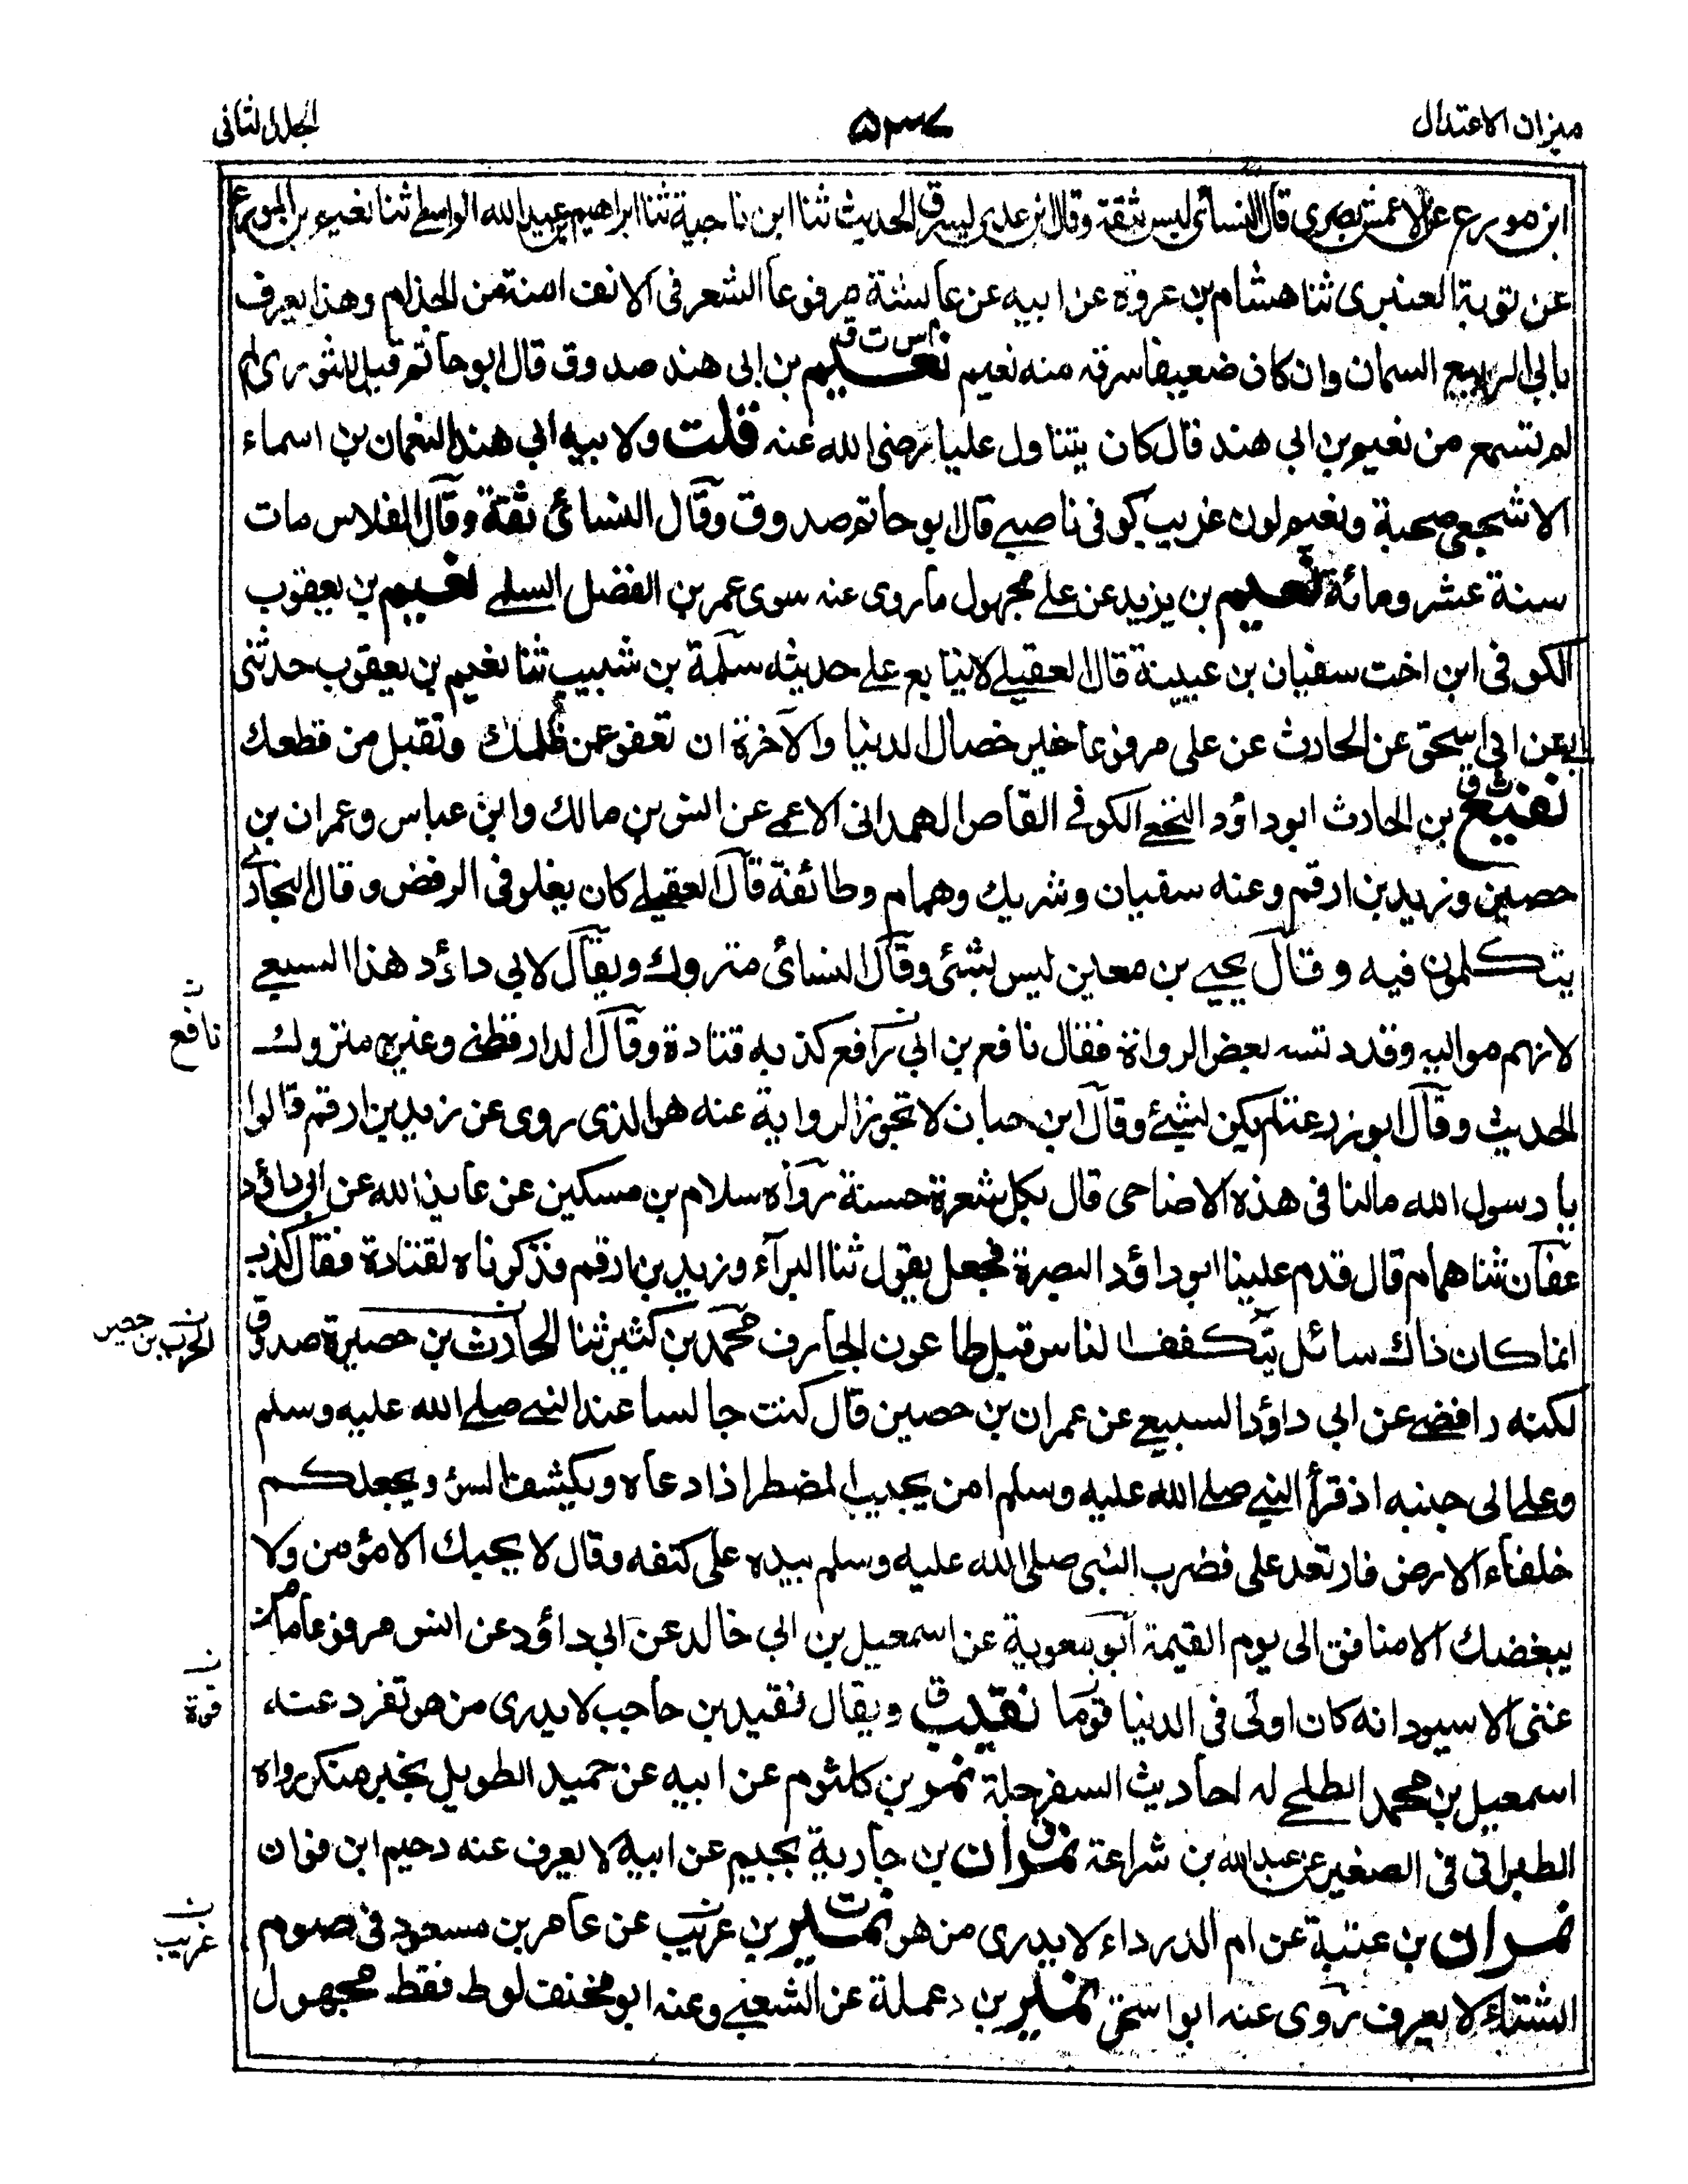 ميزان الاعتدال
٥٣٧
الجلد الثانى
ابن مورع عن الاعمش بصرى قال النسائى ليس بثقة وقال ابن عدى يسرق الحديث ثنا ابن ناجية ثنا ابراهيم بن عبيد الله الواسطے ثنا نعيم بن المورع
عن توبة العنبرى ثنا هشام بن عروة عن ابيه عن عائشة مرفوعا الشعر فى الانف امنة من الجذام وهذا يعرف
بابى الربيع السمان وان كان ضعيفا سرقه منه نعيم نعيم بن ابى هند صدوق قال ابو حاتم قيل للثورى لم
م س ت ق
لم تسمع من نعيم بن ابى هند قال كان يتناول عليا رضى الله عنه قلت ولابيه ابى هند النعمان بن اسماء
الاشجعى صحبة ونعيم لون غريب كوفى ناصبے قال ابو حاتم صدوق وقال النسائى ثقة وقال الفلاس مات
سنة عشر ومائة نعيم بن يزيد عن علے مجهول ما روى عنه سوى عمر بن الفضل السلمے نعيم بن يعقوب
الكوفى ابن اخت سفيان بن عيينة قال العقيلے لا يتابع علے حديثه سلمة بن شبيب ثنا نعيم بن يعقوب حدثنى
ابى عن ابى اسحق عن الحارث عن على مرفوعا خير خصال الدنيا والآخرة ان تعفو عمن ظلمك وتقبل من قطعك
نفيع بن الحارث ابو داؤد النخعے الكوفے القاص الهمدانى الاعمے عن انس بن مالك وابن عباس وعمران بن
ت ق
حصين وزيد بن ارقم وعنه سفيان وشريك وهمام وطائفة قال العقيلے كان يغلو فى الرفض وقال البخارے
يتكلمون فيه وقال يحيے بن معين ليس بشئى وقال النسائى متروك ويقال لابى داؤد هذا السبيعے
لانهم مواليه وقد دلسه بعض الرواة فقال نافع بن ابى رافع كذبه قتادة وقال الدارقطنے وغيره متروك
ن
نافع
الحديث وقال ابو زرعة لم يكن بشيئے وقال ابن حبان لا تجوز الرواية عنه هو الذى روى عن زيد بن ارقم قالوا
يا رسول الله مالنا فى هذه الاضاحى قال بكل شعرة حسنة رواه سلام بن مسكين عن عايذ الله عن ابى داؤد
عفان ثنا همام قال قدم علينا ابو داؤد البصرة فجعل يقول ثنا البراء وزيد بن ارقم فذكرناه لقتادة فقال كذب
انما كان ذاك سائل يتكفف الناس قبل طاعون الجارف محمد بن كثير ثنا الحارث بن حصيرة صدوق
ن
الحرث بن حصير
لكنه رافضے عن ابى داؤد السبيعے عن عمران بن حصين قال كنت جالسا عند النبے صلے الله عليه وسلم
وعلے الى جنبه اذ قرأ النبے صلے الله عليه وسلم امن يجيب المضطر اذا دعاه ويكشف السوء ويجعلكم
خلفاء الارض فارتعد على فضرب النبى صلى الله عليه وسلم بيده على كتفه وقال لا يحبك الا مؤمن ولا
يبغضك الا منافق الى يوم القيمة ابو معوية عن اسمعيل بن ابى خالد عن ابى داؤد عن انس مرفوعا ما من
غنى الا سيود انه كان اوتى فى الدنيا قوتا نقيب ويقال نقيد بن حاجب لا يدرى من هو تفرد عنه
ن
قوة
ق
اسمعيل بن محمد الطلحے له احاديث السفرجلة نمر بن كلثوم عن ابيه عن حميد الطويل بخبر منكر رواه
الطبرانى فى الصغير عن عبد الله بن شراعة نمران بن جارية بجيم عن ابيه لا يعرف عنه دحيم ابن قران
ق
نمران بن عتبة عن ام الدرداء لا يدرى من هو نمير بن عريب عن عامر بن مسعود فى صوم
ت
ن
غريب
الشتاء لا يعرف روى عنه ابو اسحق نمير بن دعملة عن الشعبے وعنه ابو مخنف لوط فقط مجهول